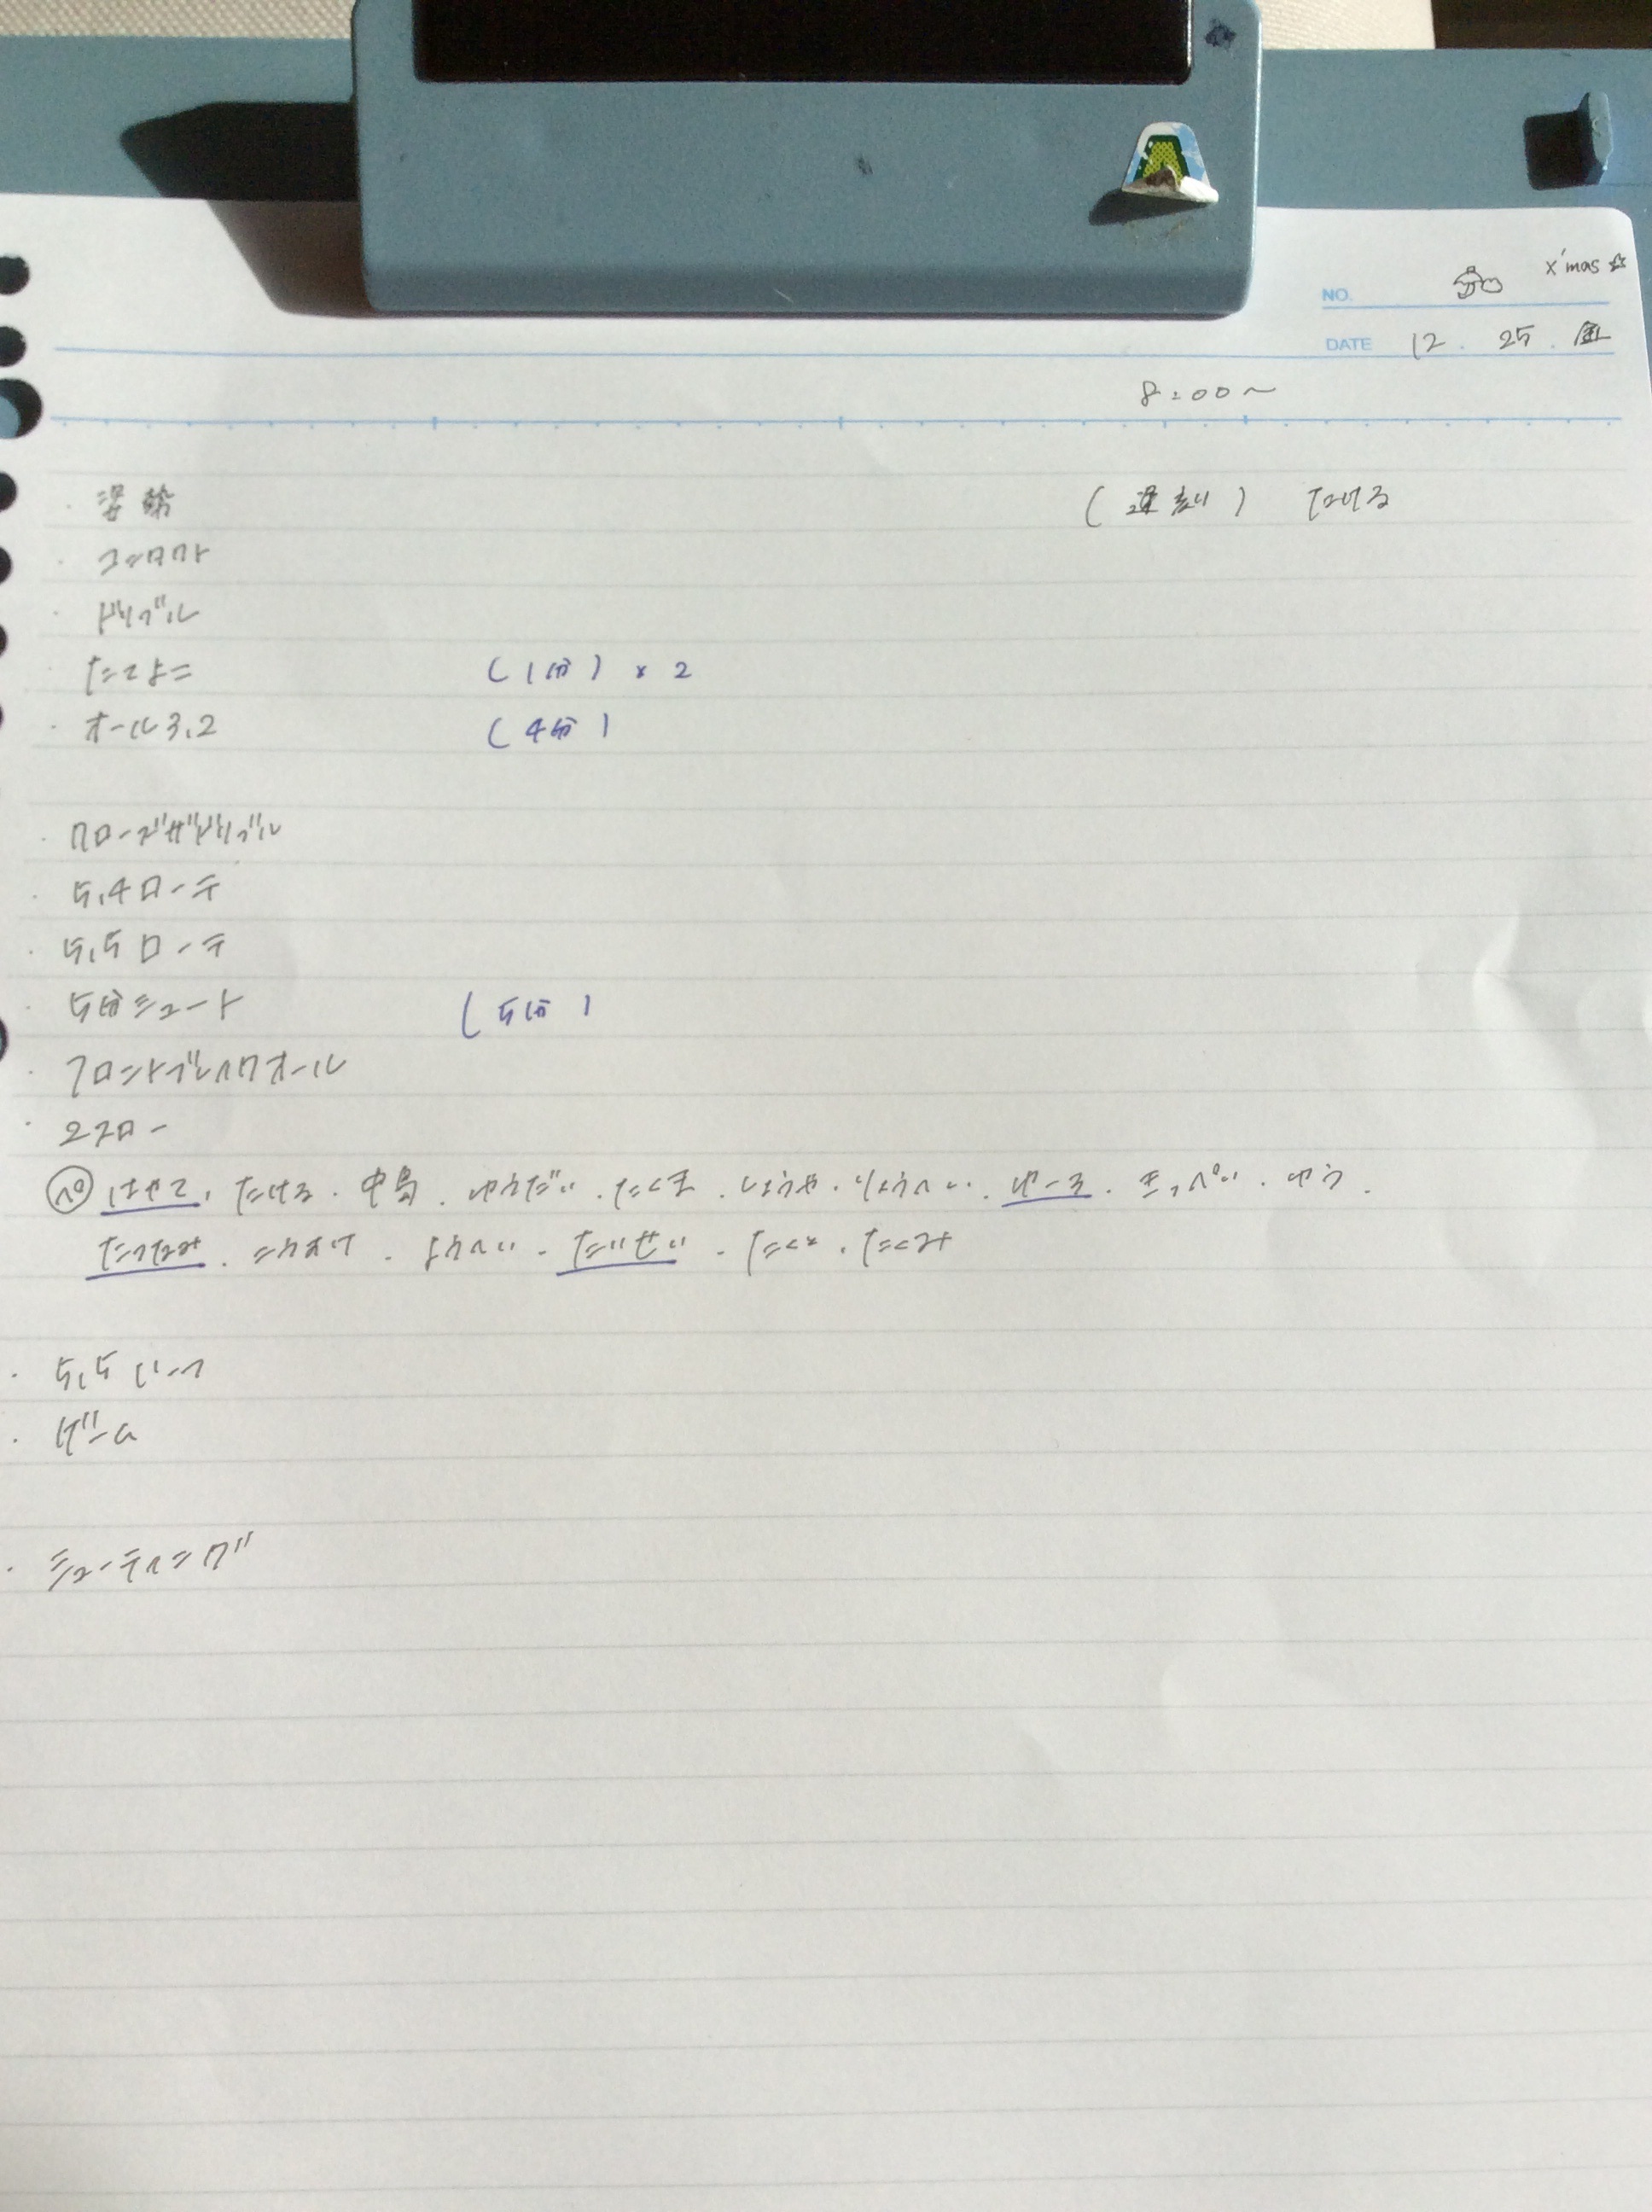 X'mas ☆
NO.
DATE 12 . 25 . 金
8:00〜
・姿勢 (遅刻) たける
・コンタクト
・ドリブル
たてよこ (1分) × 2
・オール3,2 (4分)
・クローズザドリブル
・5,4ローテ
・5,5ローテ
・5分シュート (5分)
・フロントブレイクオール
・2フロー
はやて、たける・中島・ゆうだい・たくま・しょうや・りょうへい・・きっぺい・ゆう・
たつなみ・こうすけ・ようへい・たいせい・・たくみ
・5,5
・ゲーム
・シューティング